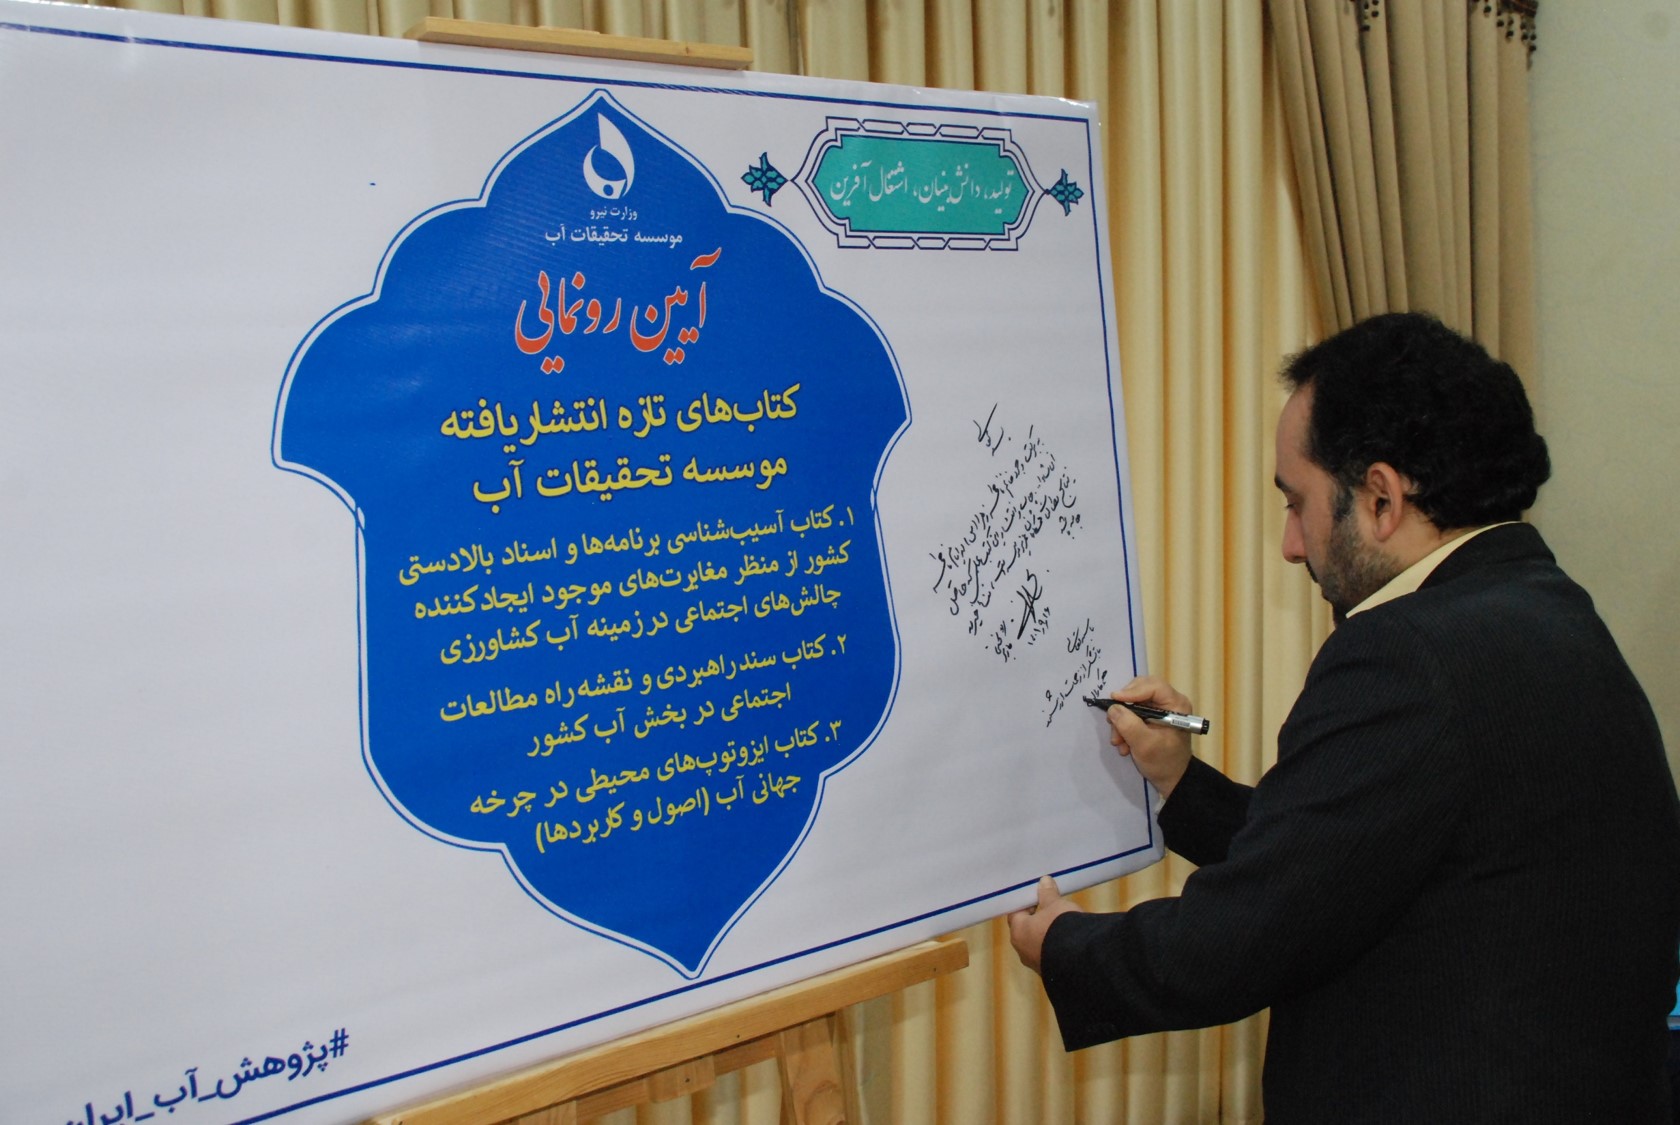 تولید، دانش بنیان، اشتغال آفرین
وزارت نیرو
موسسه تحقیقات آب
آیین رونمایی
کتاب‌های تازه انتشار یافته
موسسه تحقیقات آب
۱. کتاب آسیب‌شناسی برنامه‌ها و اسناد بالادستی
کشور از منظر مغایرت‌های موجود ایجاد کننده
چالش‌های اجتماعی در زمینه آب کشاورزی
۲. کتاب سند راهبردی و نقشه راه مطالعات
اجتماعی در بخش آب کشور
۳. کتاب ایزوتوپ‌های محیطی در چرخه
جهانی آب (اصول و کاربردها)
#پژوهش_آب_ایران